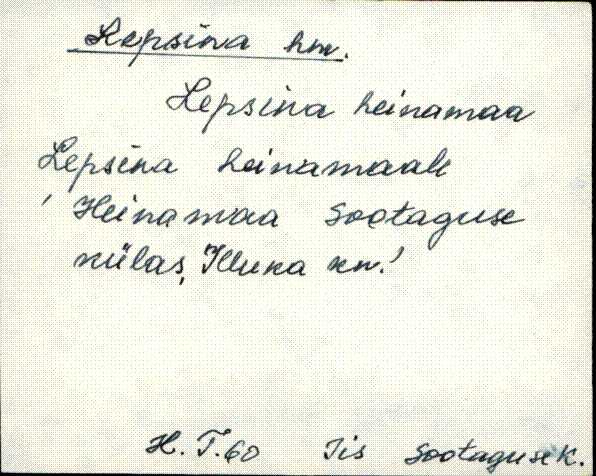 Lepsina hm.
Lepsina heinamaa
Lepsina heinamaale
'Heinamaa Sootaguse
külas, Illuka kn.'
H. T. 60 Iis Sootaguse k.